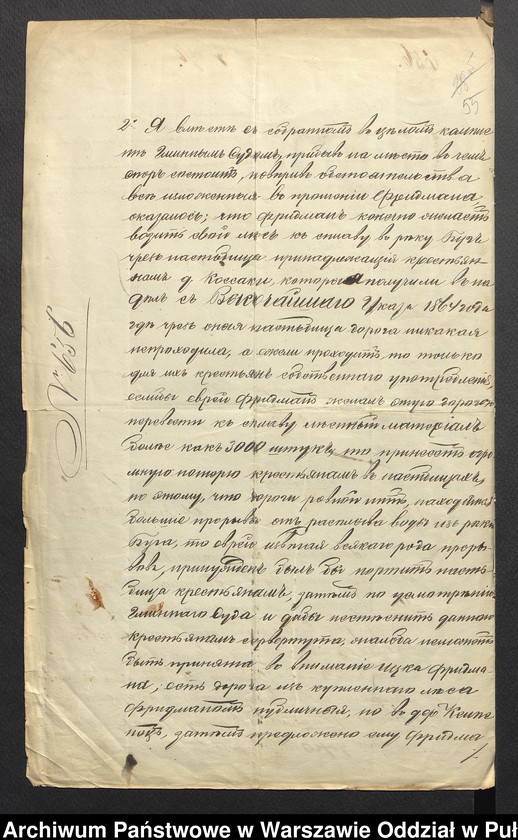 55
№ 656
2. Я вместѣ съ собраннымъ въ цѣломъ комплек
тѣ Гминнымъ Судомъ, прибывъ на мѣсто въ чемъ
споръ состоитъ, повѣривъ обстоятельства
все изложенныя въ прошеніи Фридмана,
оказалось; что Фридманъ конечно желаетъ
возить свой лѣсъ къ сплаву въ рѣку Бугъ
чрезъ пастбища принадлежащія крестья
намъ д. Коссаки, которыя получили въ на
дѣлъ съ Высочайшаго Указа 1864 года
гдѣ чрезъ оныя пастбища дорога никакая
непроходила, а ежели проходитъ, то только
для ихъ крестьянъ собственнаго употребленія,
еслибы еврей Фридманъ желалъ этою дорогою
перевести къ сплаву лѣсный матеріалъ
болѣе какъ 3000 штукъ, то принесетъ огро
мную потерю крестьянамъ въ пастбищахъ,
по этому, что дороги ровной нѣтъ, находятся
большіе прорывы отъ расплыва воды изъ рѣки
Буга, то еврей избѣгая всякаго рода проры
вовъ, принужденъ былъ бы портить пастб
бища крестьянамъ, затѣмъ по усмотрѣнію
Гминнаго Суда и дабы нестѣснить даннаго
крестьянамъ сервертута, жалоба неможетъ
быть принята во вниманіе Ицка Фридма
на, есть дорога изъ купленнаго лѣса
Фридманомъ публичная, но въ дер. Кемпе
пощь, затѣмъ предложено ему Фридма